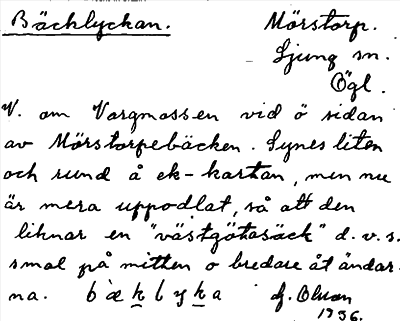 Bäcklyckan.
Mörstorp.
Ljung sn.
Ögl.
V. om Vargmossen vid ö sidan
av Mörstorpebäcken. Synes liten
och rund å ek-kartan, men nu
är mera uppodlat, så att den
liknar en "västgötasäck" d.v.s.
smal på mitten o bredare åt ändar-
na. bæklyka
1936.